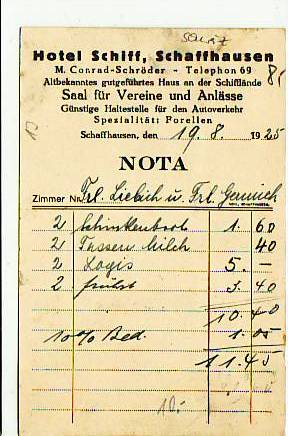 Hotel Schiff, Schaffhausen
M. Conrad-Schröder - Telephon 69
Altbekanntes gutgeführtes Haus an der Schifflände
Saal für Vereine und Anlässe
Günstige Haltestelle für den Autoverkehr
Spezialität: Forellen
Schaffhausen, den 19. 8. 1925
NOTA
Zimmer Nr. Frl. Liebich u. Frl.
2 Schinkenbrote 1. 60
2 Tassen Milch 40
2 Logis 5. –
2 Frühst. 3. 40
10 40
10% Bed. 1. 05
11. 45
10.-